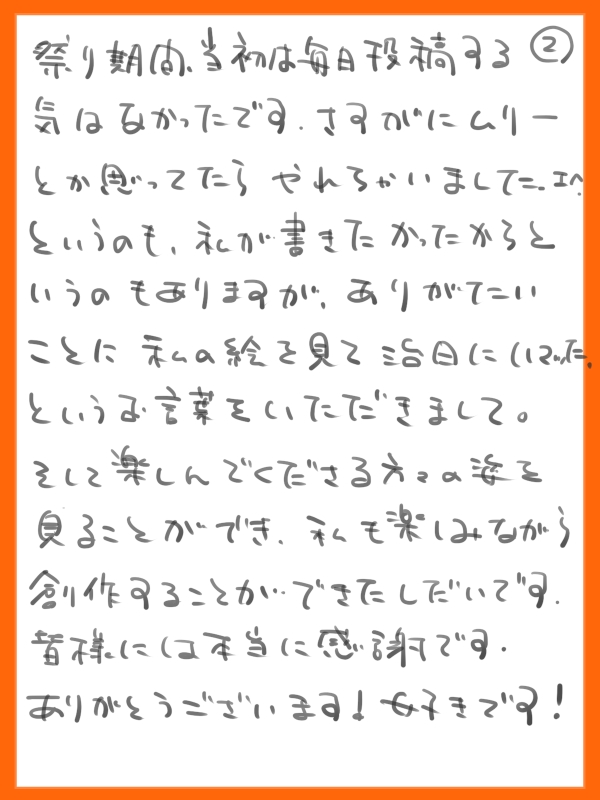 ②
祭り期間、当初は毎日投稿する
気はなかったです.さすがにムリー
とか思ってたらやれちゃいました.エヘ
というのも、私が書きたかったからと
いうのもありますが、ありがたい
ことに私の絵を見て 治日にはまった.
というお言葉をいただきまして。
そして楽しんでくださる方々の姿を
見ることができ、私も楽しみながら
創作することができたしだいです.
皆様には本当に感謝です.
ありがとうございます!好きです!